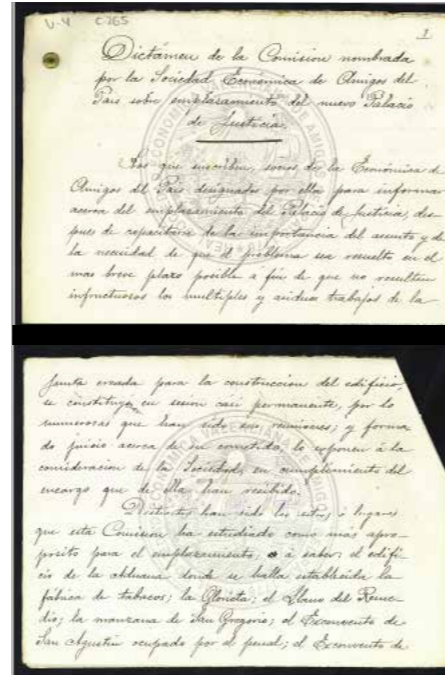 V-4 C-265
1
Dictámen de la Comision nombrada
por la Sociedad Económica de Amigos del
Pais sobre emplazamiento del nuevo Palacio
de Justicia.
Los que suscriben, sócios de la Económica de
Amigos del Pais designados por ella para informar
acerca del emplazamiento del Palacio de Justicia, des-
pues de capacitarse de la importancia del asunto y de
la necesidad de que el problema sea resuelto en el
mas breve plazo posible a fin de que no resulten
infructuosos los multiples y arduos trabajos de la
Junta creada para la construccion del edificio,
se constituyó en sesion casi permanente, por lo
numerosas que han sido sus reuniones; y forma
do juicio acerca de su cometido, lo exponen á la
consideracion de la Sociedad, en cumplimiento del
encargo que de ella han recibido.
Distintos han sido los sitios ó lugares
que esta Comision ha estudiado como más apro-
posito para el emplazamiento, á saber: el edifi-
cio de la Aduana donde se halla establecida la
fábrica de tabacos; la Glorieta; el Llano del Reme-
dio; la manzana de San Gregorio; el Exconvento de
San Agustin ocupado por el penal; el Exconvento de